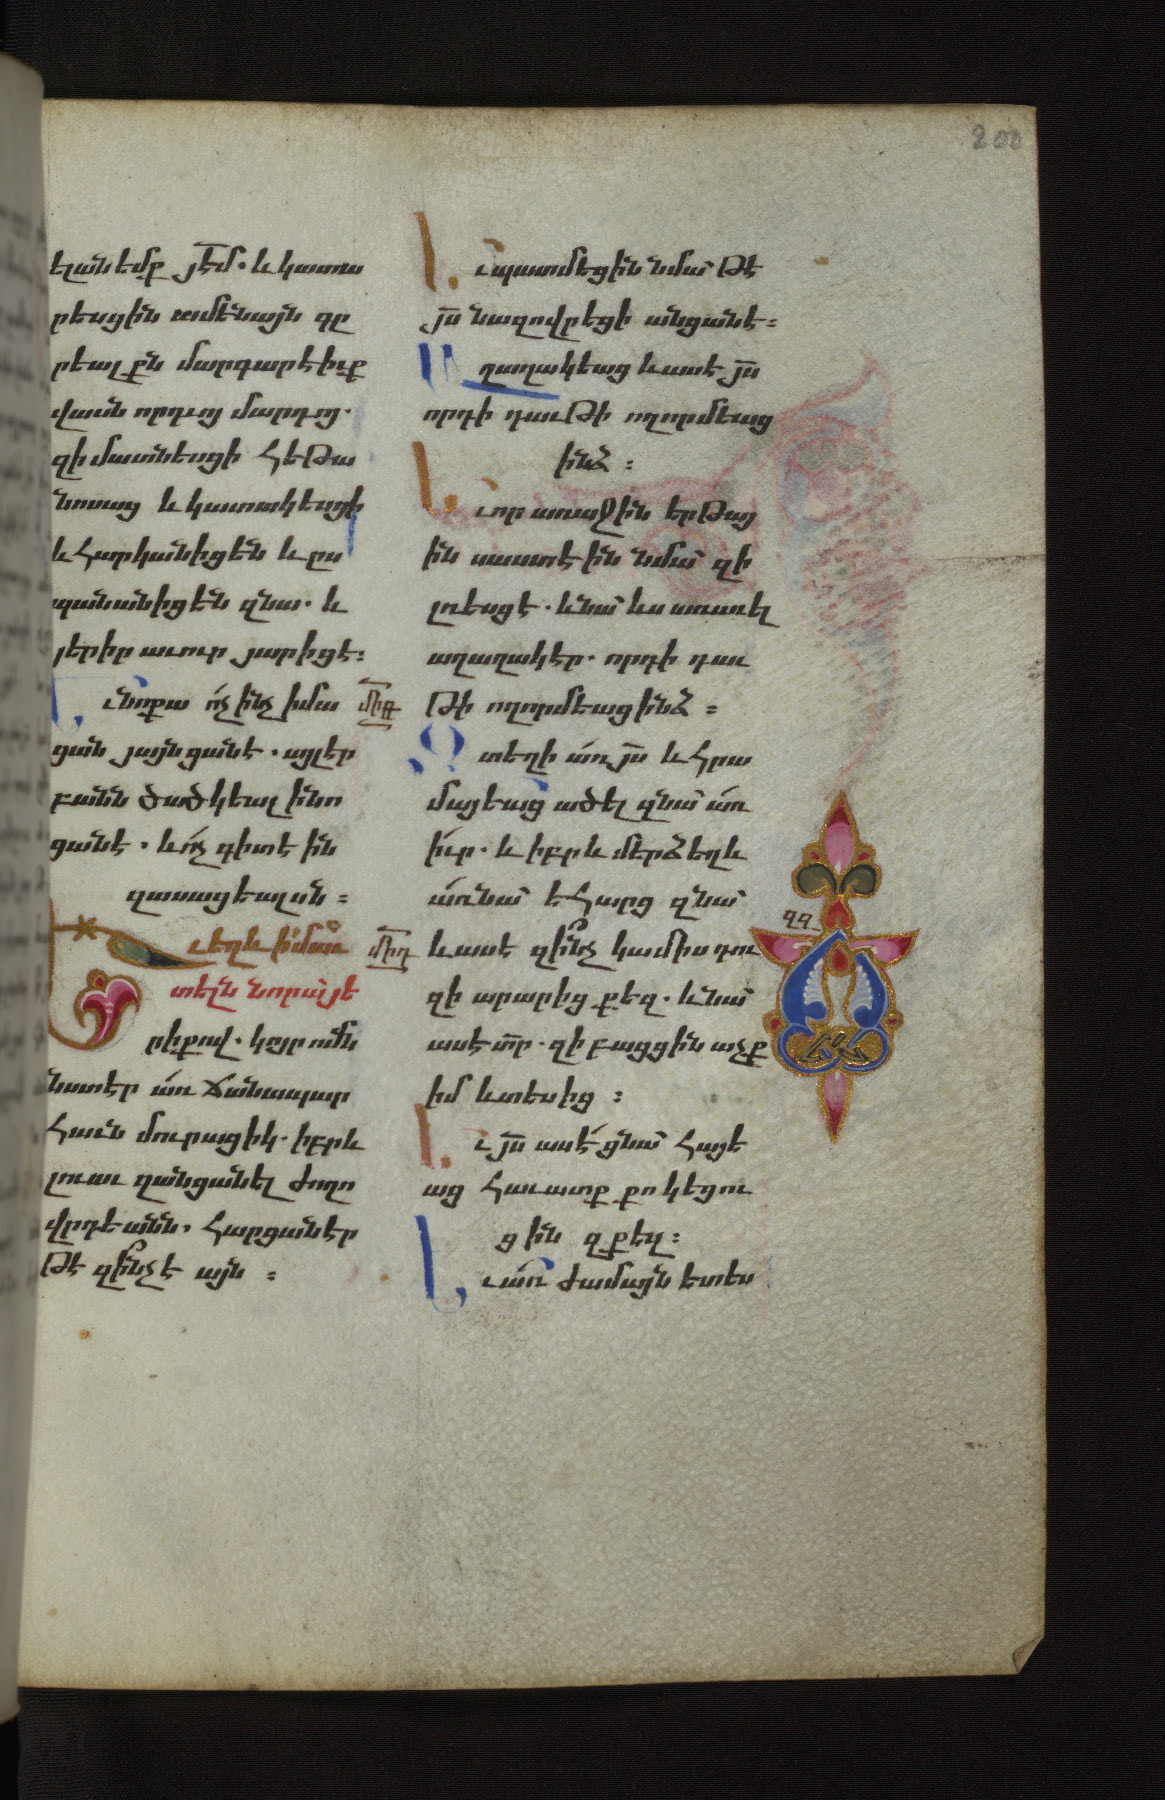 200
ելանեմք յե՟մ. և կատա
րեսցին ամենայն գը
րեալքն մարգարէիւք
վասն որդւոյ մարդոյ.
զի մատնեսցի հեթա
նոսաց և կատակեսցի
և հարկանիցեն և ըս
պանանիցեն զնա. և
յերիր աւուր յարիցէ:
Եւ նոքա ո՛չ ինչ իմա
ցան յայնցանէ. այլ էր
բանն ծածկեալ ի նո
ցանէ. և ո՛չ գիտէին
զասացեալսն =
Եւ եղև ի մեր՟
տելն նորա յե
րիքով. կոյր ոմն
նստէր առ ճանապար
հաւն մուրացիկ. իբրև
լուաւ զանցանել ժողո
վրդեանն. հարցանէր
թէ զի՞նչ է այն =
մի՟գ
մի՟դ
Եւ պատմեցին նմա թէ
յս՟ նազովրեցի անցանէ=
Աղաղակեաց և ասէ յս՟
որդի դաւթի ողորմեաց
ինձ :
Եւ որ առաջին երթայ
ին սաստէին նմա զի
լռեսցէ. և նա ևս առաւել
աղաղակէր. որդի դաւ
թի ողորմեաց ինձ =
Զտեղի առ յս՟ և հրա
մայեաց ածել զնա առ
իւր. և իբրև մերձեղև
առ նա եհարց զնա
և ասէ զի՞նչ կամիս դու
զի արարից քեզ. և նա
ասէ տր՟. զի բացցին աչք
իմ և տեսից :
Եւ յս՟ ասէ ցնա հայե
աց հաւատք քո կեցու
ցին զքեզ :
Եւ առ ժամայն ետես